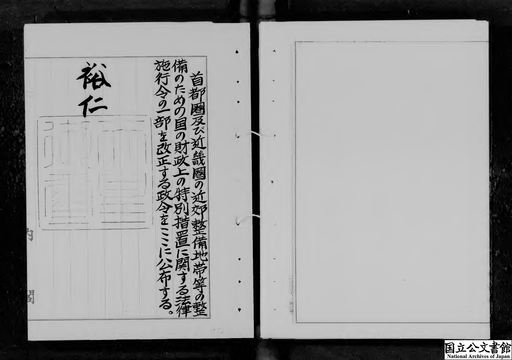 首都圏及び近畿圏の近郊整備地帯等の整
備のための国の財政上の特別措置に関する法律
施行令の一部を改正する政令をここに公布する。
裕仁
内閣
国立公文書館
National Archives of Japan